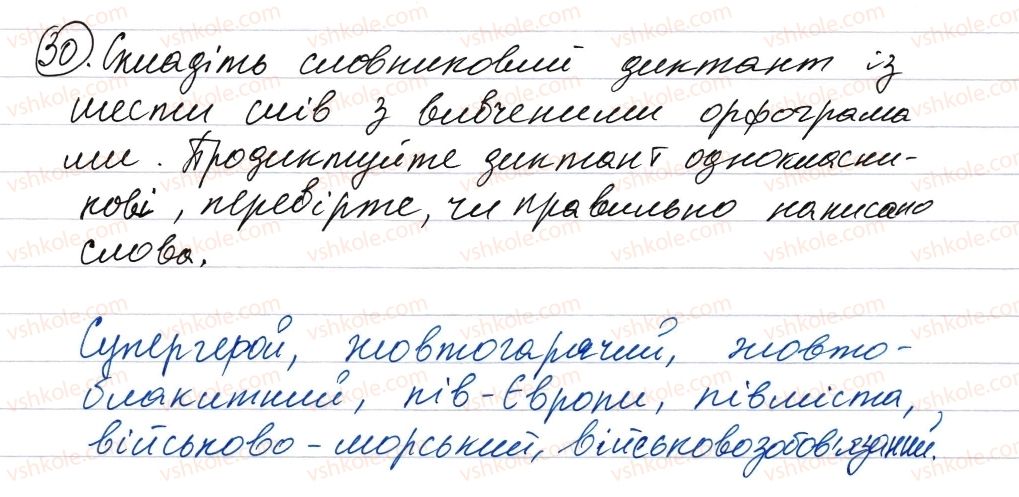 30. Складіть словниковий диктант із
шести слів з вивченими орфограма
ми. Продиктуйте диктант однокласни-
кові, перевірте, чи правильно написано
слова.
Супергерой, жовтогарячий, жовто-
блакитний, пів-Європи, півміста,
військово-морський, військовозобов'язаний.